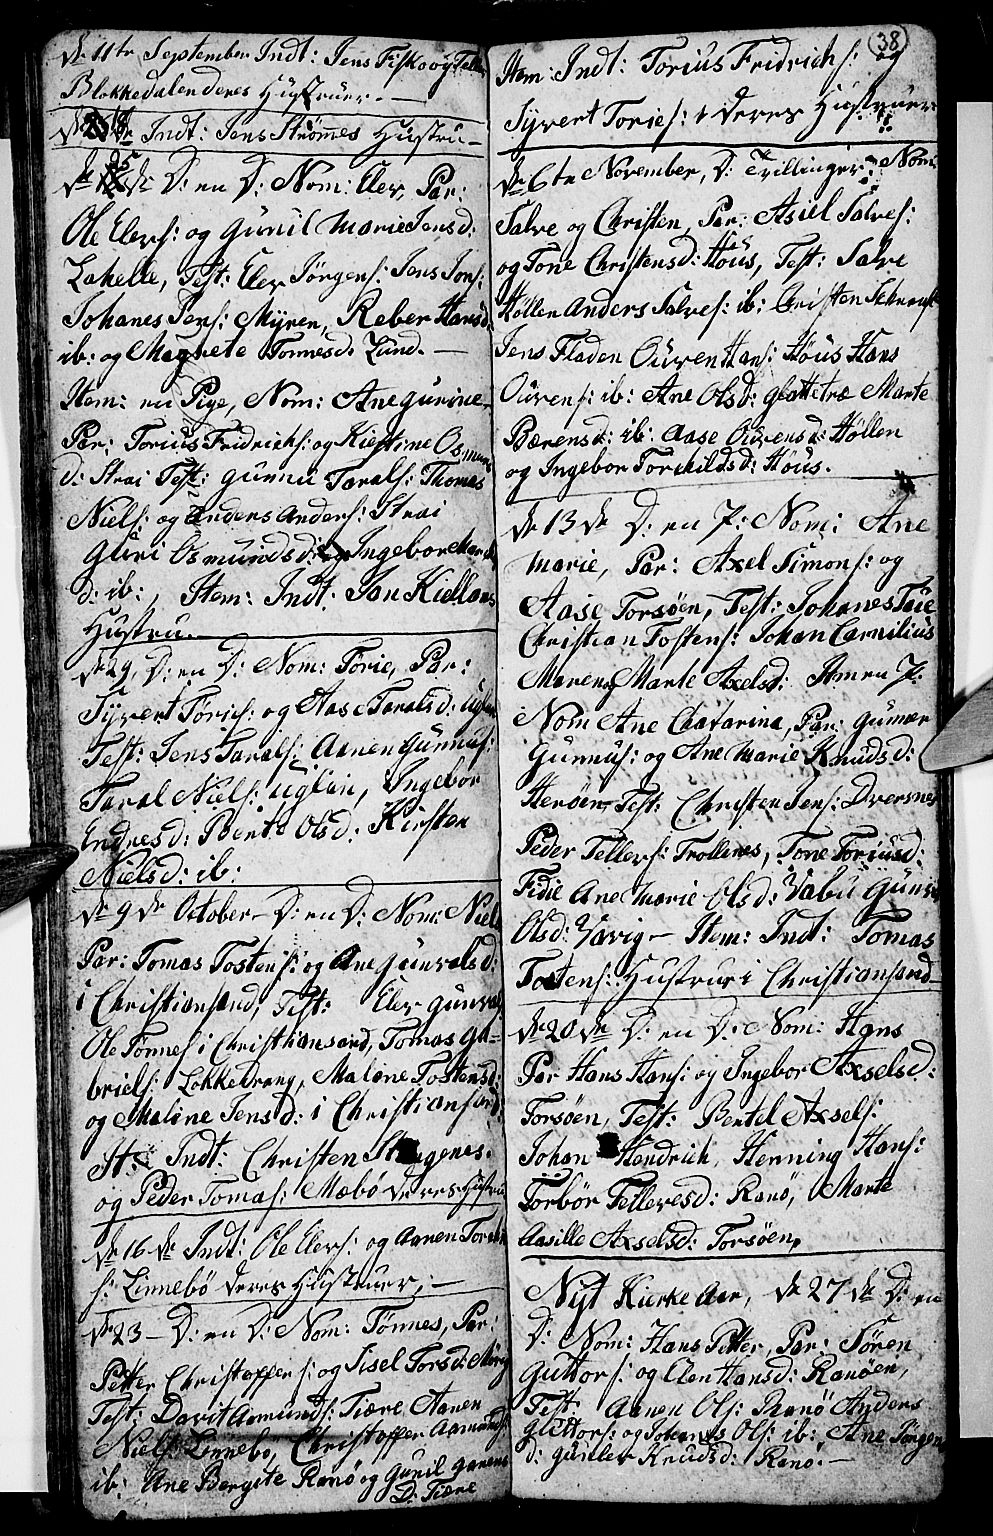 de 11te September Indt: Jens Fiskoog Teller
Blokkedalen deres Hustruer. —
Indt: Jens Strømes Hustru —
D: en D: Nom: Elev, Par:
Ole Elevs: og Gunil Marie Jensd:
Lahelle, Test: Elev Jørgens: Jens Jons:
Johanes Pers: Myren, Reber Hansd:
ib: og Magrete Tonnesd: Lund. —
Item: en Pige, Nom: Ane Gurine
Par: Torius Fridrichs: og Kiestine Osmuns
d: Strai Test: Gunnu Tarals: Thomas
Niels: og Anders Anders: Strai
Guri Osmundsd: og Ingebor
d: ib:, Item: Indt: Jan Kiellans
Hustru.
de 29, D: en D: Nom: Torie, Par:
Syvert Tories: og Aase Taralsd:
Test: Jens Tarals: Aanen Gunnus:
Taral Niels: Uglen, Ingebor
Endresd: Bente Olsd: Kirsten
Nielsd: ib:
de 9de October D: en D: Nom: Niels
Par: Tomas Tostens: og Ane Gunvalsd:
i Christiansand, Test: Elev Gunvals
Ole Tønnes i Christiansand, Tomas Ga-
briels: Løkkedrang, Malene Tostensd:
og Malene Jensd: i Christiansand
It: Indt: Christen
og Peder Tomas: Mæbø deres Hustruer
de 16de Indt: Ole Elevs: og Aanen
s: Linnebø deres Hustruer, —
de 23 — D: en D: Nom: Tønnes, Par:
Petter Christoffers: og Sisel Torsd:
Test: Davit Asmunds: Tiære Aanen
Niels: Linnebø, Christoffer Aamunds:
ib: Ane Bergite Ranø og Gunil Aanens
D: Tiære
38
Item: Indt: Torius Fridrichs: og
Syvert Tories: deres Hustruer
de 6te November, D: Tvillinger: Nom:
Salve og Christen, Par: Asiel Salves:
og Tone Christensd: Høus, Test: Salve
Høllen Anders Salves: ib: Christen
Jens Fladen Ouven Hans: Høus Hans
Ouvens: ib: Ane Olsd: Glattetræ Marte
Bærensd: ib: Aase Ouvensd: Høllen
og Ingebor Torkildsd: Høus.
de 13de D: en P: Nom: Ane
Marie, Par: Axel Simons: og
Aase Torsøen, Test: Johanes
Christian Tostens: Johan Carnilius
Maren, Marte Axelsd: Item en P:
Nom Ane Chatarina, Par: Gunner
Gunnus: og Ane Marie Knudsd:
Herøen, Test: Christen Jens: Dversnes
Peder Tellefs: Trollenes, Tone Toriusd:
Fidie Ane Marie Olsd:
Olsd: Vavig — Item: Indt: Tomas
Tostens: Hustrue i Christiansand
de 20de D: en D: Nom: Hans
Par Hans Hans: og Ingebor Axselsd:
Torsøen, Test: Bentel Axsels:
Johan Hendrich, Henning Hans:
Torbør Tellevsd: Ranø, Marte
Aasille Axselsd: Torsøen,
Nyt Kierke Aar, de 27de D: en
D: Nom: Hans Petter, Par: Søren
Guttors: og Elen Hansd: Ranøen,
Test: Aanen Ols: Ranø Anders
Guttors: og Johanes Ols: ib: Ane Jørgen
d: Gunlev Knudsd: Ranø. —